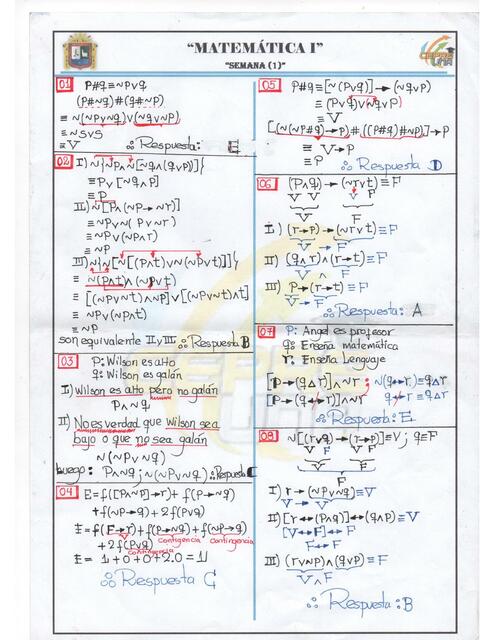 "MATEMÁTICA I"
"SEMANA (1)"
CEPRE UNA
01
P#q≡~P∨q
(P#~q)#(q#~P)
≡~(~P∨~q)∨(~q∨~P)
≡~S∨S
≡V ∴ Respuesta: E
02 I) ~{~P∧~[~q∧(q∨P)]}
≡P∨[~q∧P]
≡P
II) ~[P∧(~P→~r)]
≡~P∨~(P∨~r)
≡~P∨(~P∧r)
≡~P
III) ~{~[~[(P∧t)∨(~P∨t)]]}
≡~(P∧t)∧(~P∨t)
≡[(~P∨~t)∧~P]∨[(~P∨~t)∧t]
≡~P∨(~P∧t)
≡~P
son equivalente II y III ∴ Respuesta B
03 P: Wilson es alto
q: Wilson es galán
I) Wilson es alto pero no galán
P∧~q
II) No es verdad que Wilson sea
bajo o que no sea galán
~(~P∨~q)
Luego: P∧~q ; ~(~P∨~q) ∴ Respuesta C
04 E=f([P∧~P]→r)+ f(P→~q)
+f(~P→q)+2f(P∨q)
E=f(F→r)+f(P→~q)+f(~P→q)
contigencia contingencia
+2f(P∨q)
contingencia
E= 1+0+0+2.0=1
∴ Respuesta C
05 P#q≡[~(P∨q)]→(~q∨P)
≡(P∨q)∨(~q∨P)
≡V
[(~(~P#q)→P)#((P#q)#~P)]→P
≡V→P
≡P
∴ Respuesta D
06 (P∧q)→(~r∨t)≡F
V V V F
V F
I) (r→P)→(~r∨t)≡F
V→F
II) (q∧r)∧(r→t)≡F
V F
III) P→(r→t)≡F
V→F
∴ Respuesta: A
07 P: Angel es profesor
q: Enseña matemática
r: Enseña Lenguaje
[P→(qΔr)]∧~r ; ~(q↔r)≡qΔr
[P→(q↔r)]∧~r q↔r≡qΔr
∴ Respuesta: E
08 ~[(r∨q)→(r→P)]≡V ; q≡F
V F V F
V F
I) r→(~P∨~q)≡V
V→V
II) [r↔(P∧q)]↔(q∧P)≡V
[V↔F]↔F
F↔F
III) (r∨~P)∧(q∨P)≡F
V∧F
∴ Respuesta: B